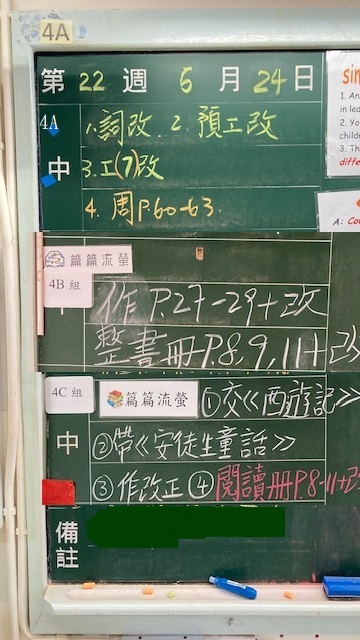 4A
第 22 週 6 月 24 日
4A
中
1.詞改. 2.預工改
3.工(7)改
4.周P.60-63.
篇篇流螢
4B 組
作P.27-29+改
整書冊P.8,9,11+改
4C 組
篇篇流螢
①交《西遊記》
中
②帶《安徒生童話》
③作改正 ④閱讀冊P.8-11+改
備註
sim
1. An
in lea
2. Yo
child
3. Th
diffe
A: Cou